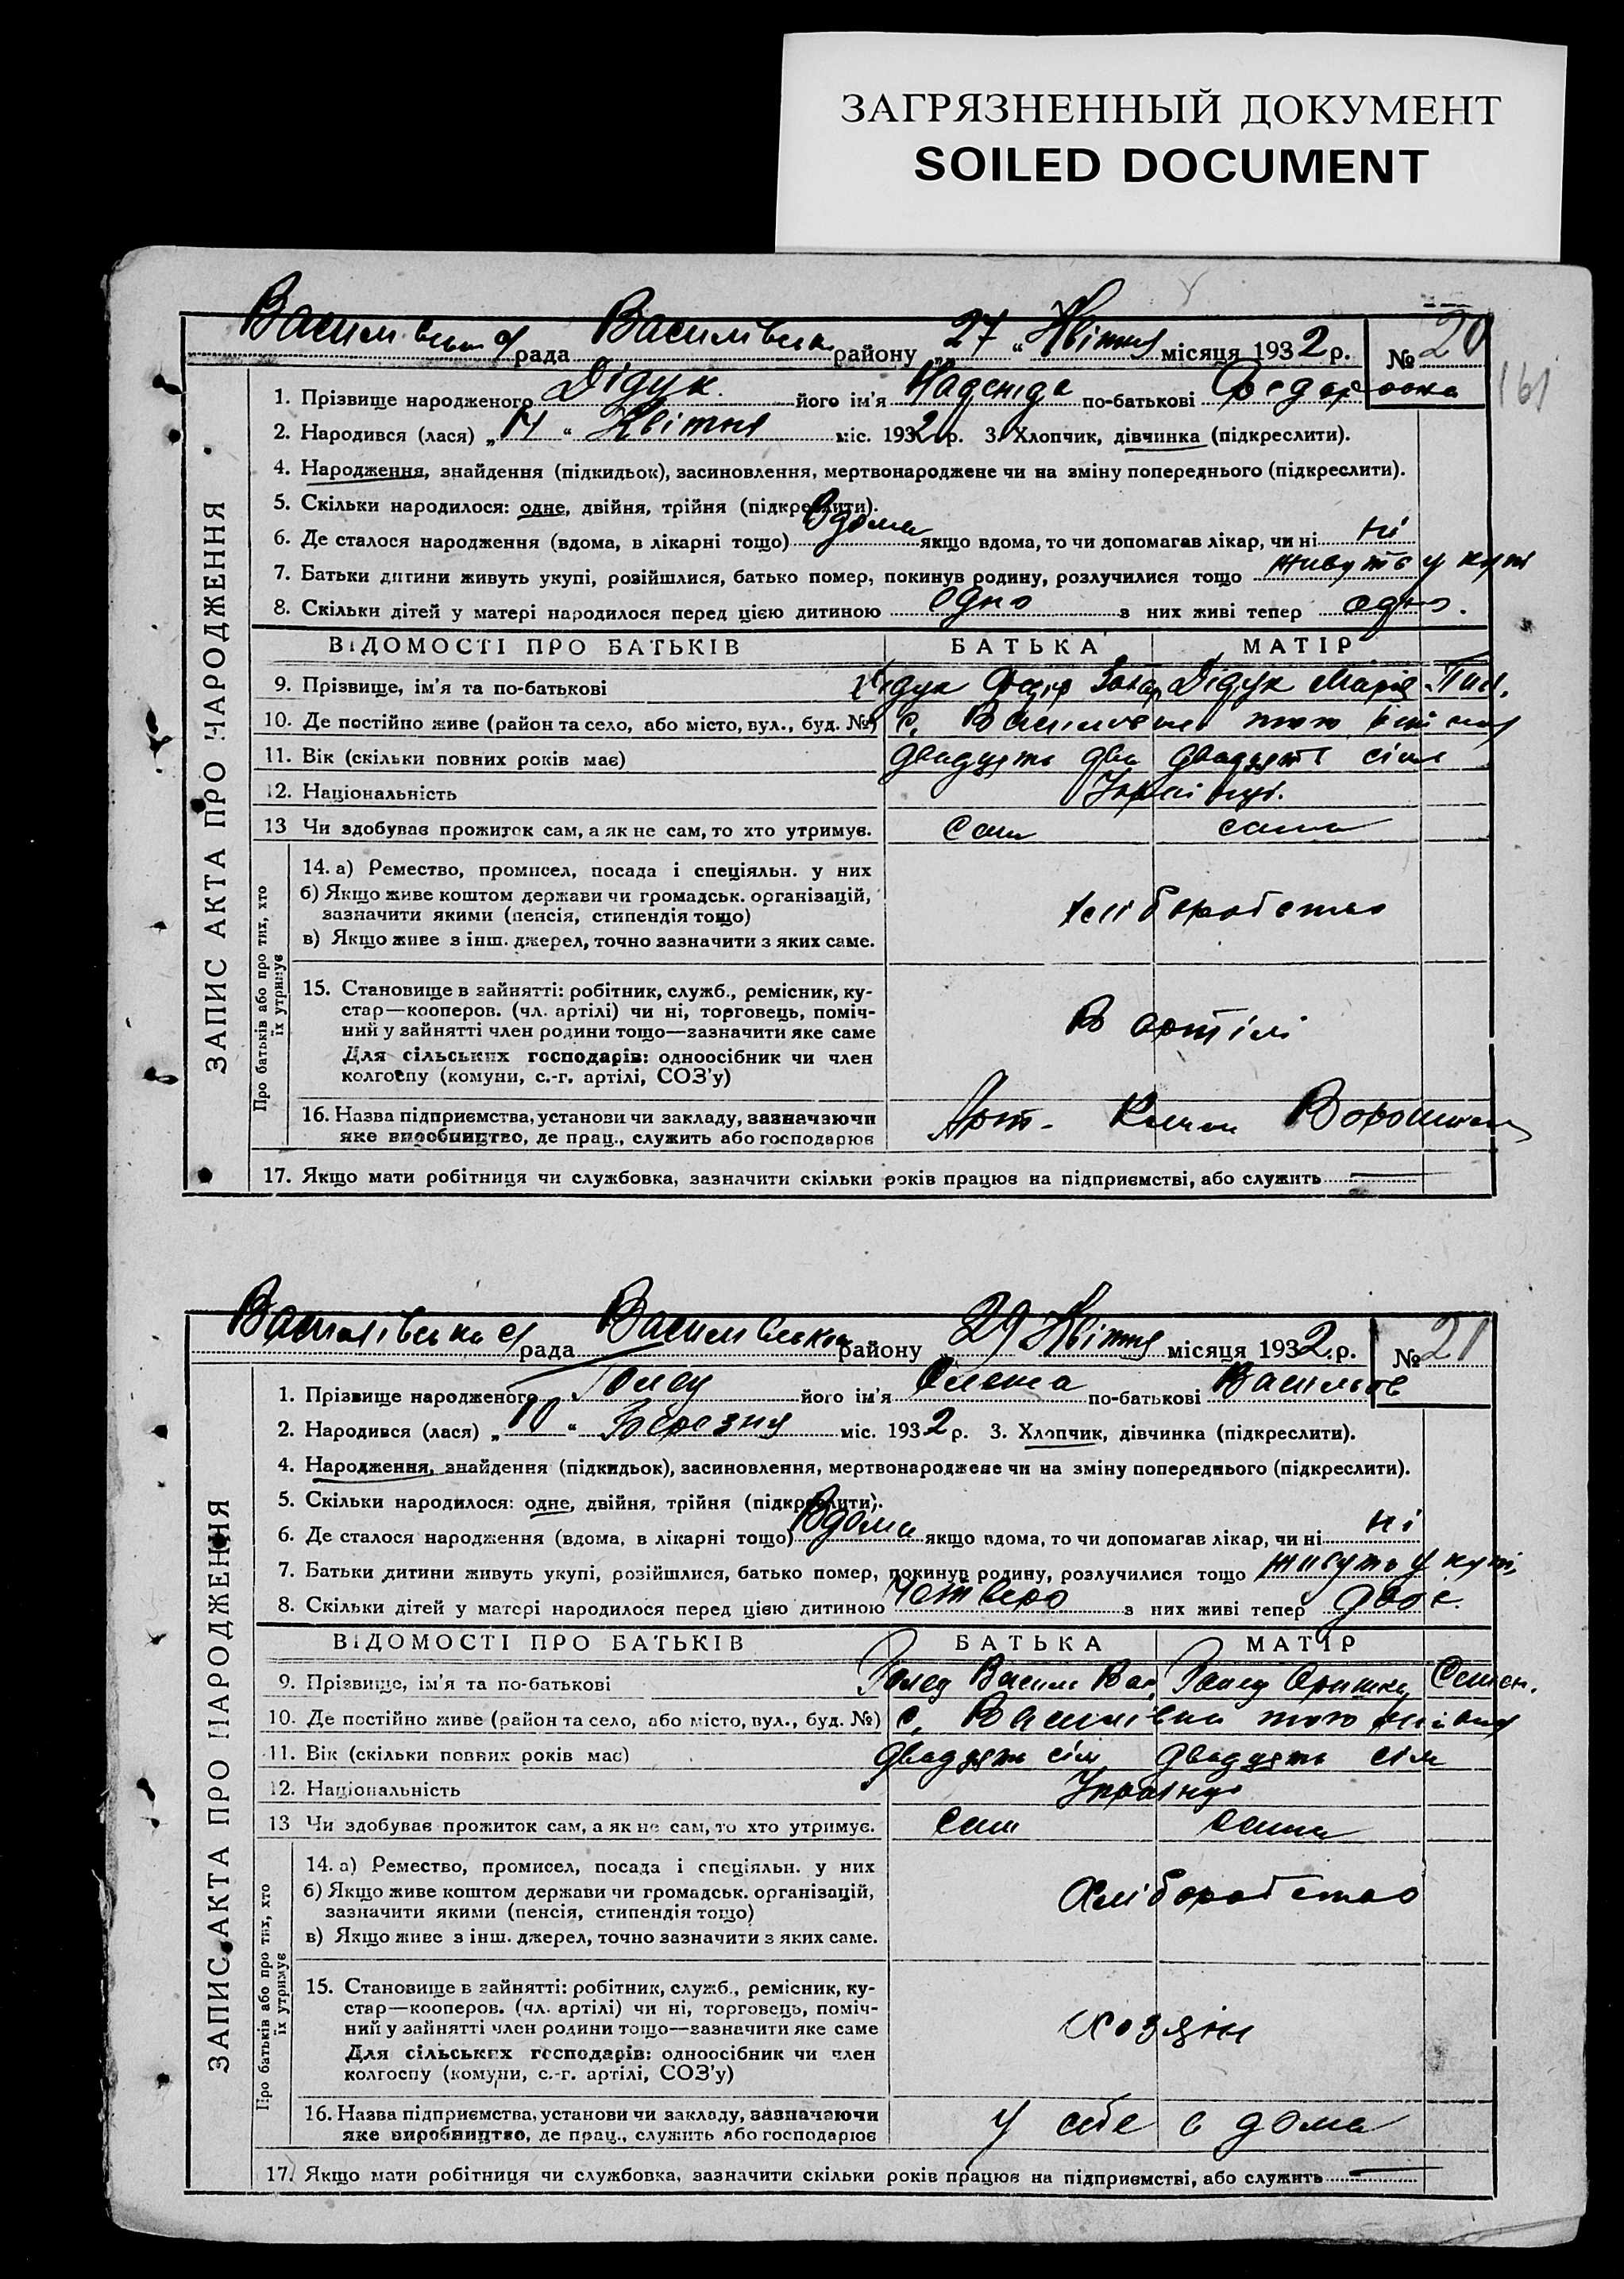 ЗАГРЯЗНЕННЫЙ ДОКУМЕНТ
SOILED DOCUMENT
ЗАПИС АКТА ПРО НАРОДЖЕННЯ
рада району „27“ Квітня місяця 1932 р. № 20
161
1. Прізвище народженого Дідук його ім'я Надєжда по-батькові
2. Народився (лася) „ “ Квітня міс. 1932 р. 3. Хлопчик, дівчинка (підкреслити).
4. Народження, знайдення (підкидьок), засиновлення, мертвонароджене чи на зміну попереднього (підкреслити).
5. Скільки народилося: одне, двійня, трійня (підкреслити).
6. Де сталося народження (вдома, в лікарні тощо) Вдома якщо вдома, то чи допомагав лікар, чи ні ні
7. Батьки дитини живуть укупі, розійшлися, батько помер, покинув родину, розлучилися тощо живуть у купі
8. Скільки дітей у матері народилося перед цією дитиною одно з них живі тепер одно.
ВІДОМОСТІ ПРО БАТЬКІВ БАТЬКА МАТІР
9. Прізвище, ім'я та по-батькові Дідук Дідук Марія
10. Де постійно живе (район та село, або місто, вул., буд. №) с.
11. Вік (скільки повних років має) двадцять два двадцять сім
12. Національність Українці.
13 Чи здобував прожиток сам, а як не сам, то хто утримує. Сам сама
Про батьків або про тих, хто їх утримує
14. а) Ремество, промисел, посада і спеціяльн. у них
б) Якщо живе коштом держави чи громадськ. організацій,
зазначити якими (пенсія, стипендія тощо) хліборобство
в) Якщо живе з інш. джерел, точно зазначити з яких саме.
15. Становище в зайнятті: робітник, служб., ремісник, ку-
стар—кооперов. (чл. артілі) чи ні, торговець, поміч-
ний у зайнятті член родини тощо—зазначити яке саме В артілі
Для сільських господарів: одноосібник чи член
колгоспу (комуни, с.-г. артілі, СОЗ'у)
16. Назва підприємства, установи чи закладу, зазначаючи Арт.
яке виробництво, де прац., служить або господарює
17. Якщо мати робітниця чи службовка, зазначити скільки років працює на підприємстві, або служить —
ЗАПИС АКТА ПРО НАРОДЖЕННЯ
рада району 29 Квітня місяця 1932 р. № 21
1. Прізвище народженого його ім'я Олекса по-батькові
2. Народився (лася) „10“ Березня міс. 1932 р. 3. Хлопчик, дівчинка (підкреслити).
4. Народження, знайдення (підкидьок), засиновлення, мертвонароджене чи на зміну попереднього (підкреслити).
5. Скільки народилося: одне, двійня, трійня (підкреслити).
6. Де сталося народження (вдома, в лікарні тощо) Вдома якщо вдома, то чи допомагав лікар, чи ні ні
7. Батьки дитини живуть укупі, розійшлися, батько помер, покинув родину, розлучилися тощо живуть у купі
8. Скільки дітей у матері народилося перед цією дитиною четверо з них живі тепер двоє.
ВІДОМОСТІ ПРО БАТЬКІВ БАТЬКА МАТІР
9. Прізвище, ім'я та по-батькові Василь Вас. Семен.
10. Де постійно живе (район та село, або місто, вул., буд. №) с. Василівка
11. Вік (скільки повних років має) двадцять сім двадцять сім
12. Національність Українці
13 Чи здобував прожиток сам, а як не сам, то хто утримує. Сам сама
Про батьків або про тих, хто їх утримує
14. а) Ремество, промисел, посада і спеціяльн. у них
б) Якщо живе коштом держави чи громадськ. організацій,
зазначити якими (пенсія, стипендія тощо) Хліборобство
в) Якщо живе з інш. джерел, точно зазначити з яких саме.
15. Становище в зайнятті: робітник, служб., ремісник, ку-
стар—кооперов. (чл. артілі) чи ні, торговець, поміч-
ний у зайнятті член родини тощо—зазначити яке саме Хозяїн
Для сільських господарів: одноосібник чи член
колгоспу (комуни, с.-г. артілі, СОЗ'у)
16. Назва підприємства, установи чи закладу, зазначаючи у себе в дома
яке виробництво, де прац., служить або господарює
17. Якщо мати робітниця чи службовка, зазначити скільки років працює на підприємстві, або служить —